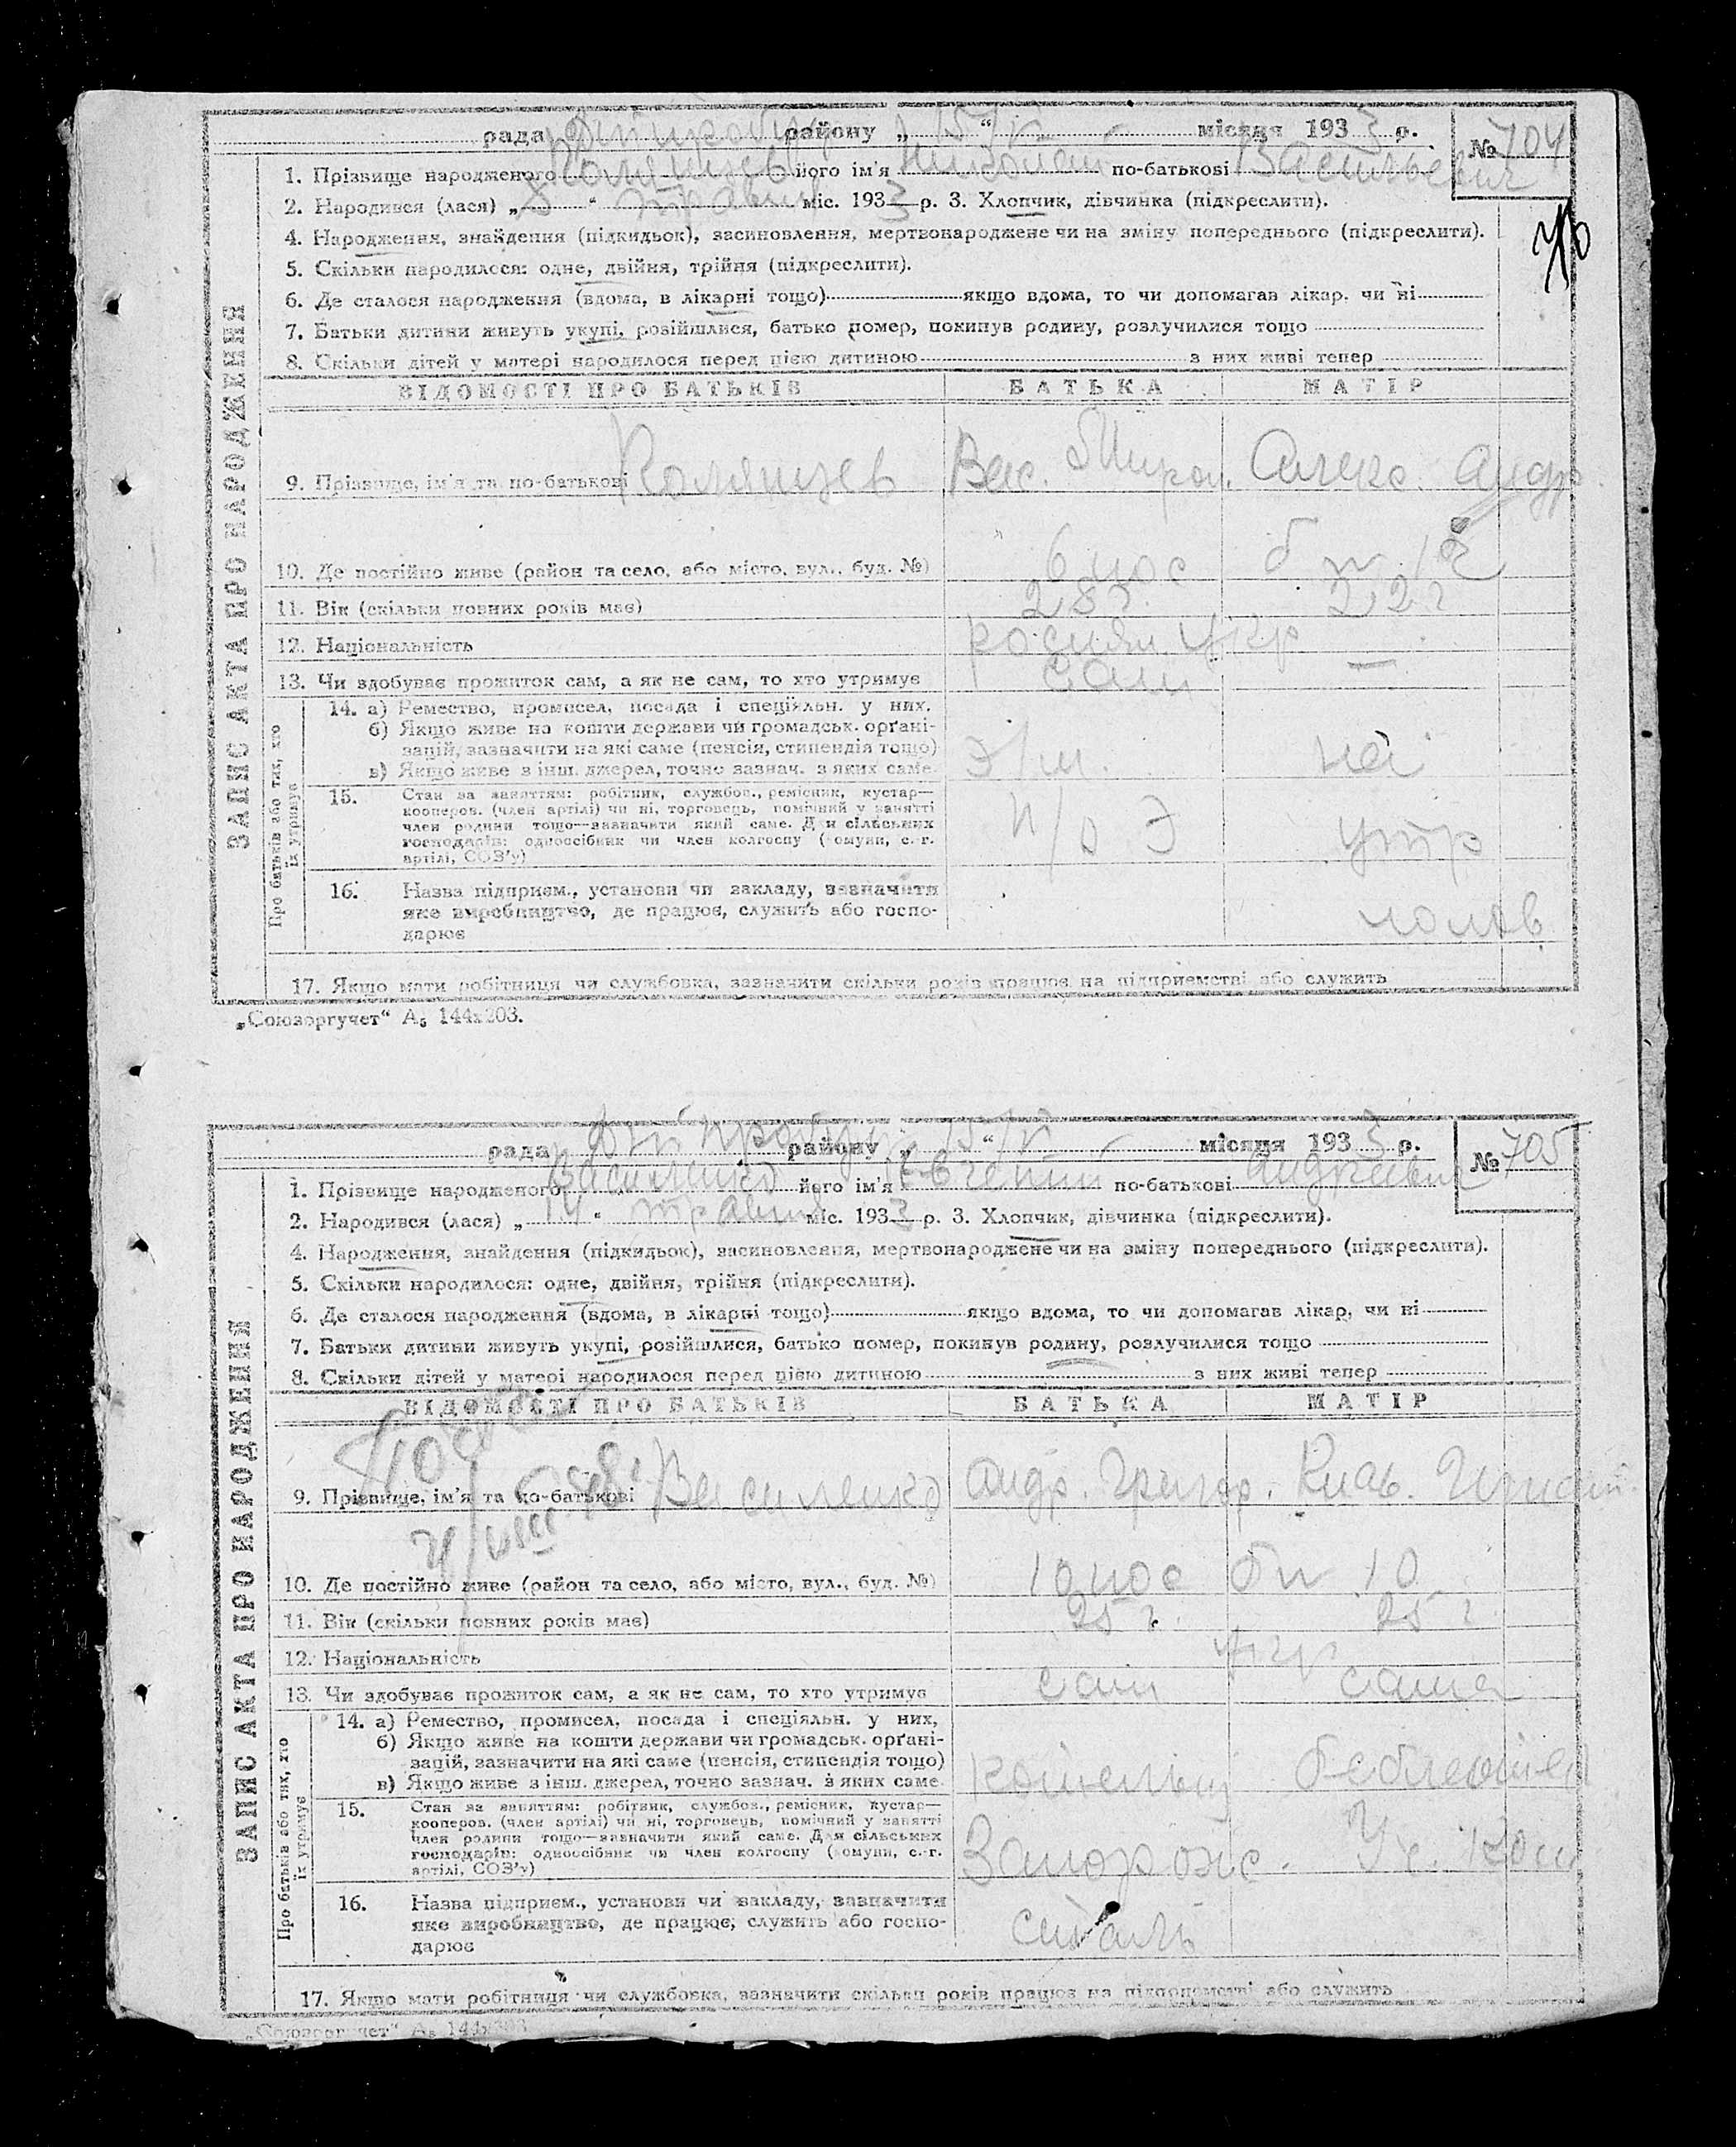 рада району „ 15/V “ місяця 1933 р. № 704
1. Прізвище народженого його ім'я Николай по-батькові Васильевич
2. Народився (лася) „ 8 “ травня міс. 1933 р. 3. Хлопчик, дівчинка (підкреслити).
4. Народження, знайдення (підкидьок), засиновлення, мертвонароджене чи на зміну попереднього (підкреслити).
5. Скільки народилося: одне, двійня, трійня (підкреслити).
6. Де сталося народження (вдома, в лікарні тощо) якщо вдома, то чи допомагав лікар, чи ні
7. Батьки дитини живуть укупі, розійшлися, батько помер, покинув родину, розлучилися тощо
8. Скільки дітей у матері народилося перед цією дитиною з них живі тепер
ЗАПИС АКТА ПРО НАРОДЖЕННЯ
ВІДОМОСТІ ПРО БАТЬКІВ БАТЬКА МАТІР
9. Прізвище, ім'я та по-батькові Вас. Мирон. Алекс. Андр.
10. Де постійно живе (район та село, або місто, вул., буд. №) 6 пос
11. Вік (скільки повних років має) 28 г. 22 г
12. Національність росіян. укр
13. Чи здобуває прожиток сам, а як не сам, то хто утримує сам —
Про батьків або тих, хто їх утримує
14. а) Ремество, промисел, посада і спеціяльн. у них.
б) Якщо живе на кошти держави чи громадськ. орґані-
зацій, зазначити на які саме (пенсія, стипендія тощо)
в) Якщо живе з інш. джерел, точно зазнач. з яких саме
15. Стан за заняттям: робітник, службов., ремісник, кустар—
кооперов. (член артілі) чи ні, торговець, помічний у занятті
член родини тощо—зазначити який саме. Для сільських
господарів: одноосібник чи член колгоспу (комуни, с.-г.
артілі, СОЗ'у) утр
16. Назва підприєм., установи чи закладу, зазначити
яке виробництво, де працює, служить або госпо-
дарює
17. Якщо мати робітниця чи службовка, зазначити скільки років працює на підприємстві або служить
„Союзоргучет“ А5 144х203.
рада району „ 15/V “ місяця 1933 р. № 705
1. Прізвище народженого Василенко його ім'я Евгений по-батькові Андреевич
2. Народився (лася) „ 14 “ травня міс. 1933 р. 3. Хлопчик, дівчинка (підкреслити).
4. Народження, знайдення (підкидьок), засиновлення, мертвонароджене чи на зміну попереднього (підкреслити).
5. Скільки народилося: одне, двійня, трійня (підкреслити).
6. Де сталося народження (вдома, в лікарні тощо) якщо вдома, то чи допомагав лікар, чи ні
7. Батьки дитини живуть укупі, розійшлися, батько помер, покинув родину, розлучилися тощо
8. Скільки дітей у матері народилося перед цією дитиною з них живі тепер
ЗАПИС АКТА ПРО НАРОДЖЕННЯ
ВІДОМОСТІ ПРО БАТЬКІВ БАТЬКА МАТІР
9. Прізвище, ім'я та по-батькові Василенко Андр. Григор. Клав. Игнат.
10. Де постійно живе (район та село, або місто, вул., буд. №) 10 пос 10
11. Вік (скільки повних років має) 25 г. 25 г.
12. Національність укр
13. Чи здобуває прожиток сам, а як не сам, то хто утримує сам сама
Про батьків або тих, хто їх утримує
14. а) Ремество, промисел, посада і спеціяльн. у них,
б) Якщо живе на кошти держави чи громадськ. орґані-
зацій, зазначити на які саме (пенсія, стипендія тощо)
в) Якщо живе з інш. джерел, точно зазнач. з яких саме
15. Стан за заняттям: робітник, службов., ремісник, кустар—
кооперов. (член артілі) чи ні, торговець, помічний у занятті
член родини тощо—зазначити який саме. Для сільських
господарів: одноосібник чи член колгоспу (комуни, с.-г.
артілі, СОЗ'у) Запорож.
16. Назва підприєм., установи чи закладу, зазначити
яке виробництво, де працює, служить або госпо-
дарює сталь
17. Якщо мати робітниця чи службовка, зазначити скільки років працює на підприємстві або служить
„Союзоргучет“ А5 144х203